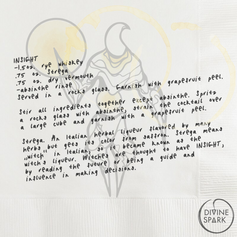 INSIGHT
-1.5oz. rye whiskey
.75 oz. Strega
.75 oz. dry vermouth
-absinthe rinse
Served in a rocks glass. Garnish with grapefruit peel.
Stir all ingredients together except absinthe. Spritz
a rocks glass with absinthe, strain the cocktail over
a large cube and garnish with a grapefruit peel.
Strega: An Italian herbal liqueur flavored by many
herbs but gets its color from saffron. Strega means
"witch" in Italian so it became known as the
witch's liqueur. Witches are thought to have INSIGHT,
by reading the future or being a guide and
influence in making decisions.
DIVINE
SPARK